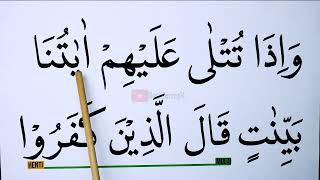 وَاِذَا تُتْلٰى عَلَيْهِمْ اٰيٰتُنَا
بَيِّنٰتٍ قَالَ الَّذِيْنَ كَفَرُوْا
HENTI